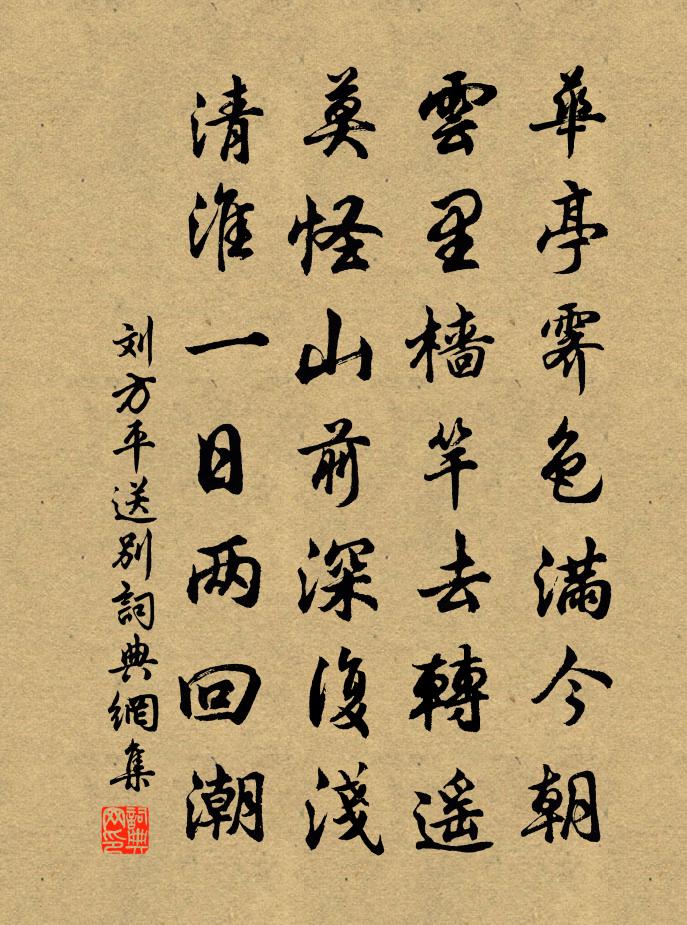 華亭霁色满今朝
雲里檣竿去轉遥
莫怪山前深復淺
清淮一日两回潮
刘方平送别詞典網集
詞典网印